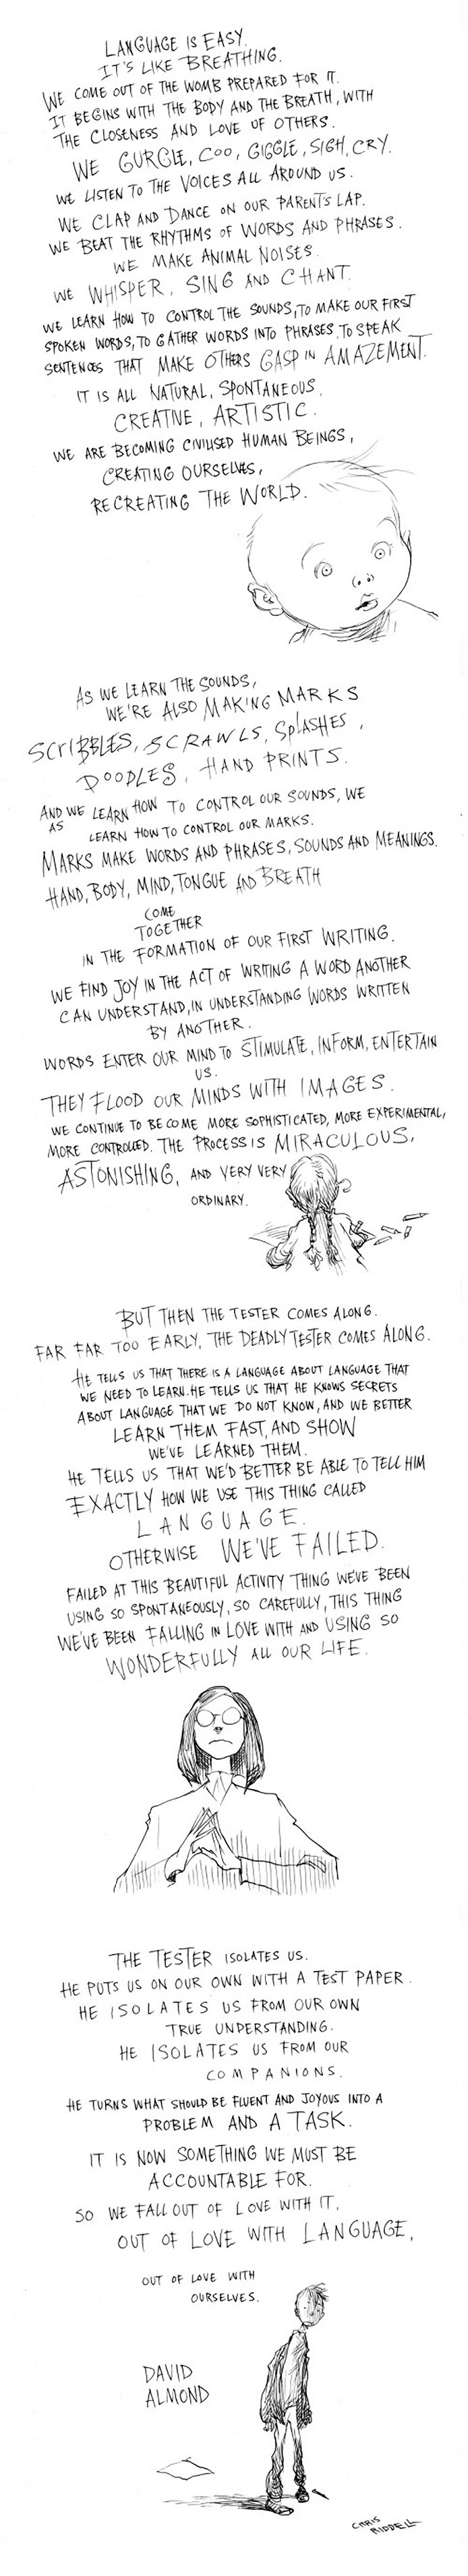 LANGUAGE IS EASY.
IT'S LIKE BREATHING.
WE COME OUT OF THE WOMB PREPARED FOR IT.
IT BEGINS WITH THE BODY AND THE BREATH, WITH
THE CLOSENESS AND LOVE OF OTHERS.
WE GURGLE, COO, GIGGLE, SIGH, CRY.
WE LISTEN TO THE VOICES ALL AROUND US.
WE CLAP AND DANCE ON OUR PARENTS LAP.
WE BEAT THE RHYTHMS OF WORDS AND PHRASES.
WE MAKE ANIMAL NOISES.
WE WHISPER, SING AND CHANT.
WE LEARN HOW TO CONTROL THE SOUNDS, TO MAKE OUR FIRST
SPOKEN WORDS, TO GATHER WORDS INTO PHRASES, TO SPEAK
SENTENCES THAT MAKE OTHERS GASP IN AMAZEMENT.
IT IS ALL NATURAL, SPONTANEOUS,
CREATIVE, ARTISTIC.
WE ARE BECOMING CIVILISED HUMAN BEINGS,
CREATING OURSELVES,
RECREATING THE WORLD.
AS WE LEARN THE SOUNDS,
WE'RE ALSO MAKING MARKS
SCRIBBLES, SCRAWLS, SPLASHES,
DOODLES, HAND PRINTS.
AND WE LEARN HOW TO CONTROL OUR SOUNDS, WE
AS LEARN HOW TO CONTROL OUR MARKS.
MARKS MAKE WORDS AND PHRASES, SOUNDS AND MEANINGS.
HAND, BODY, MIND, TONGUE AND BREATH
COME
TOGETHER
IN THE FORMATION OF OUR FIRST WRITING.
WE FIND JOY IN THE ACT OF WRITING A WORD ANOTHER
CAN UNDERSTAND, IN UNDERSTANDING WORDS WRITTEN
BY ANOTHER.
WORDS ENTER OUR MIND TO STIMULATE, INFORM, ENTERTAIN
US.
THEY FLOOD OUR MINDS WITH IMAGES.
WE CONTINUE TO BECOME MORE SOPHISTICATED, MORE EXPERIMENTAL,
MORE CONTROLLED. THE PROCESS IS MIRACULOUS,
ASTONISHING, AND VERY VERY
ORDINARY.
BUT THEN THE TESTER COMES ALONG.
FAR FAR TOO EARLY, THE DEADLY TESTER COMES ALONG.
HE TELLS US THAT THERE IS A LANGUAGE ABOUT LANGUAGE THAT
WE NEED TO LEARN. HE TELLS US THAT HE KNOWS SECRETS
ABOUT LANGUAGE THAT WE DO NOT KNOW, AND WE BETTER
LEARN THEM FAST, AND SHOW
WE'VE LEARNED THEM.
HE TELLS US THAT WE'D BETTER BE ABLE TO TELL HIM
EXACTLY HOW WE USE THIS THING CALLED
LANGUAGE.
OTHERWISE WE'VE FAILED.
FAILED AT THIS BEAUTIFUL ACTIVITY THING WE'VE BEEN
USING SO SPONTANEOUSLY, SO CAREFULLY, THIS THING
WE'VE BEEN FALLING IN LOVE WITH AND USING SO
WONDERFULLY ALL OUR LIFE.
THE TESTER ISOLATES US.
HE PUTS US ON OUR OWN WITH A TEST PAPER.
HE ISOLATES US FROM OUR OWN
TRUE UNDERSTANDING.
HE ISOLATES US FROM OUR
COMPANIONS.
HE TURNS WHAT SHOULD BE FLUENT AND JOYOUS INTO A
PROBLEM AND A TASK.
IT IS NOW SOMETHING WE MUST BE
ACCOUNTABLE FOR.
SO WE FALL OUT OF LOVE WITH IT,
OUT OF LOVE WITH LANGUAGE,
OUT OF LOVE WITH
OURSELVES.
DAVID
ALMOND
CHRIS
RIDDELL